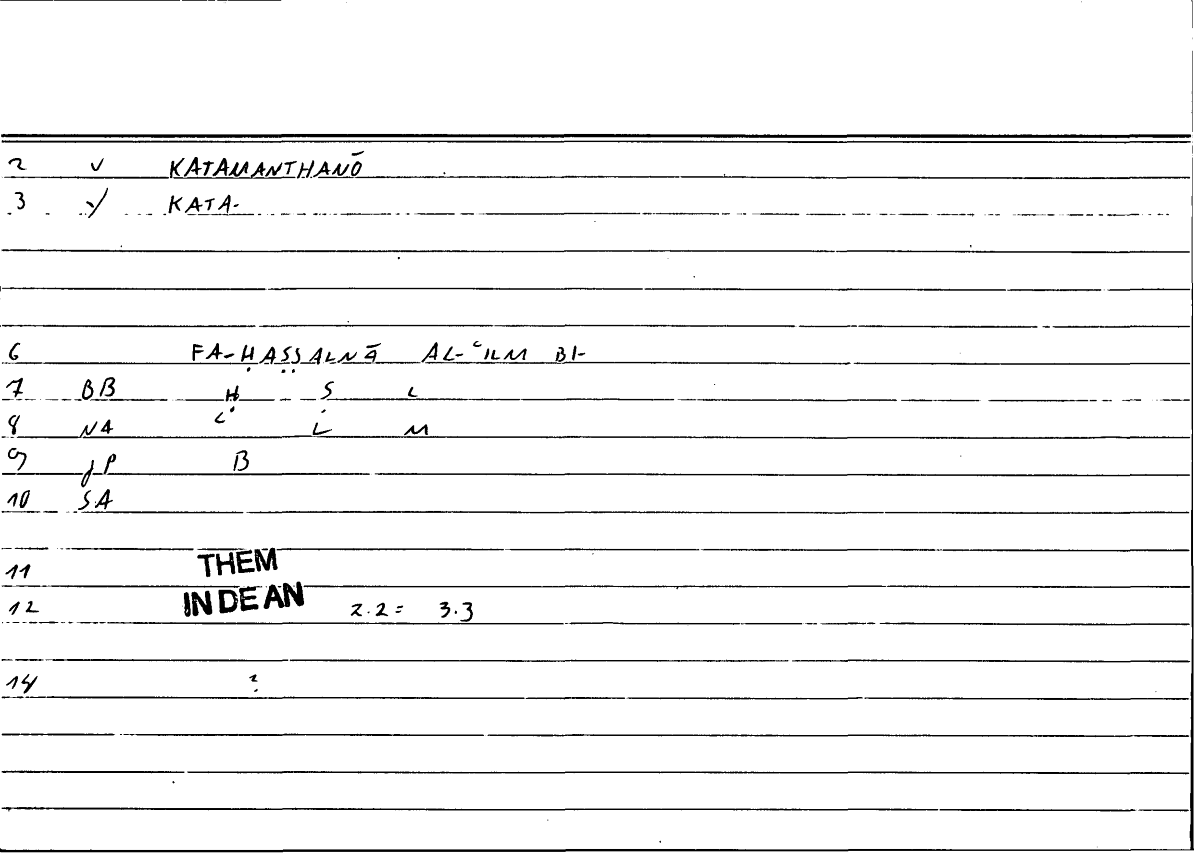 2 V KATAMANTHANŌ
3 V KATA-
6 FA-ḤAṢṢALNĀ AL-ʿILM BI-
7 BB Ḥ Ṣ L
8 NA ʿ L M
9 JP B
10 SA
11 THEM
12 IN DE AN 2.2 = 3.3
14 ?